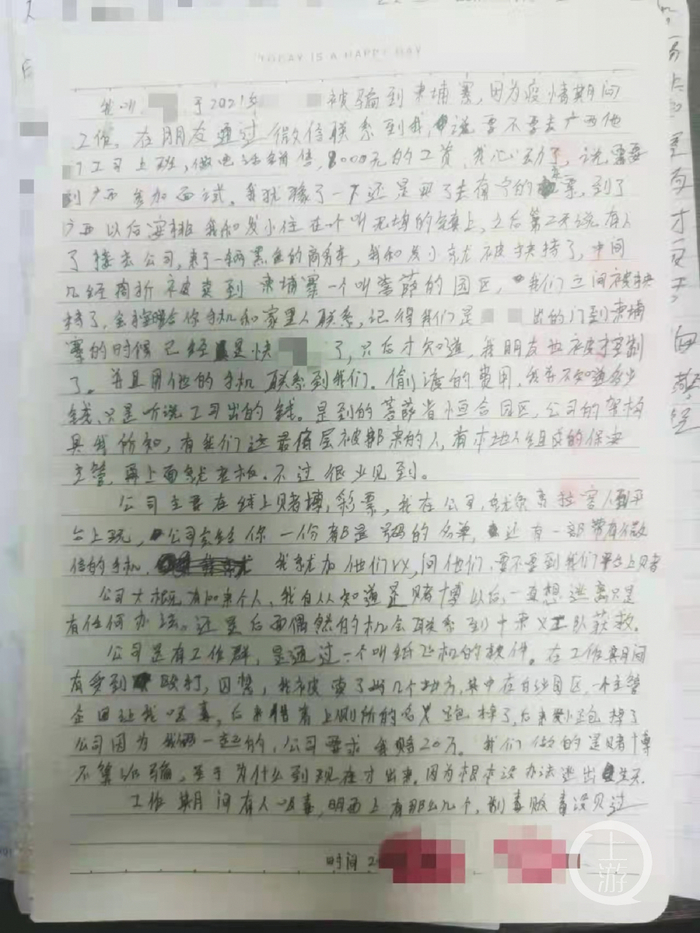 TODAY IS A HAPPY DAY
我叫 于2021年 被骗到柬埔寨,因为疫情期间
工作,在朋友通过微信联系到我,说要不要去广西他
们公司上班,做电话销售,8000元的工资,我心动了,说需要
到广西参加面试,我犹豫了一下还是买了去南宁的票,到了
广西以后安排我和发小住在个叫 的 上,之后第二天说有人
了接去公司,来了一辆黑色的商务车,我和发小就被挟持了,中间
几经周折被卖到柬埔寨一个叫菩萨的园区,我们三间被挟
持了, 你手机和家里人联系,记得我们是 出的门到柬埔
寨的时候已经是快 了,只后才知道,我朋友也被控制
了。并且用他的手机联系到我们。偷渡的费用,我并不知道多少
钱,只是听说公司出的钱。是到的菩萨省恒合园区,公司的架构
具我所知,有我们这最低层被骗来的人,有本地人组成的保安
主管,再上面就老板,不过很少见到。
公司主要在线上赌博,彩票,我在公司,就负责拉客人到平
台上玩,公司会给你一份都是号码的名单,还有一部带有微
信的手机, 我就加他们VX,问他们,要不要到我们平台上赌
公司大概有 来个人,我自从知道是赌博以后,一直想逃离只是
有任何办法。还是后面偶然的机会联系到中柬义工队获救。
公司是有工作群,是通过一个叫纸飞机的软件。在工作期间
有受到殴打,囚禁,我被卖了 几个地方,其中在 园区,一个主管
企图让我吸毒,后来借着上厕所的名义跑掉了,后来 跑掉了
公司因为我们一起的,公司要求我赔20万。我们做的是赌博
不算诈骗,至于为什么到现在才出来,因为根本没办法逃出
工作期间有人吸毒,明面上有那么几个,制毒贩毒没见过
时间 2
上游